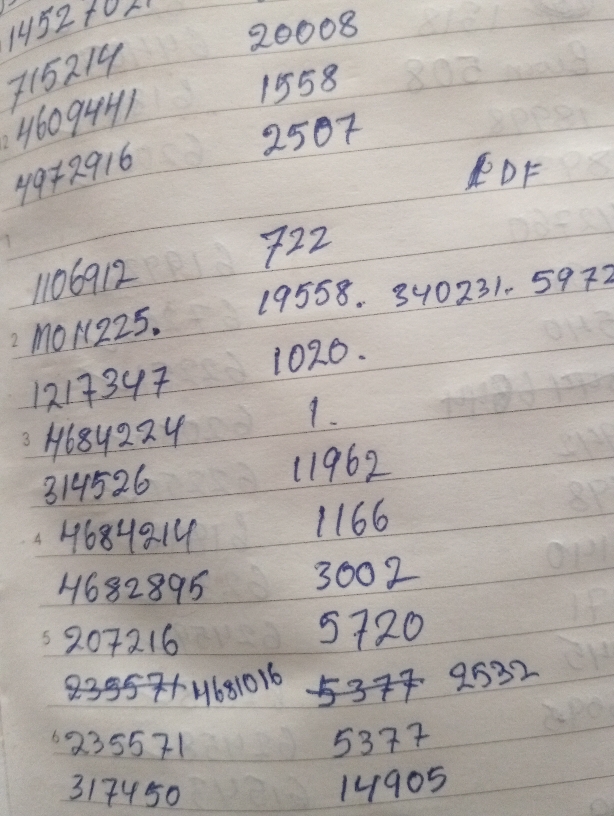 715214 20008
4609441 1558
4972916 2507
PDF
1106912 722
MON225. 19558. 340231. 5972
1217347 1020.
4684224 1.
314526 11962
4684214 1166
4682895 3002
207216 5720
235571 4681016 5377 2532
235571 5377
317450 14905